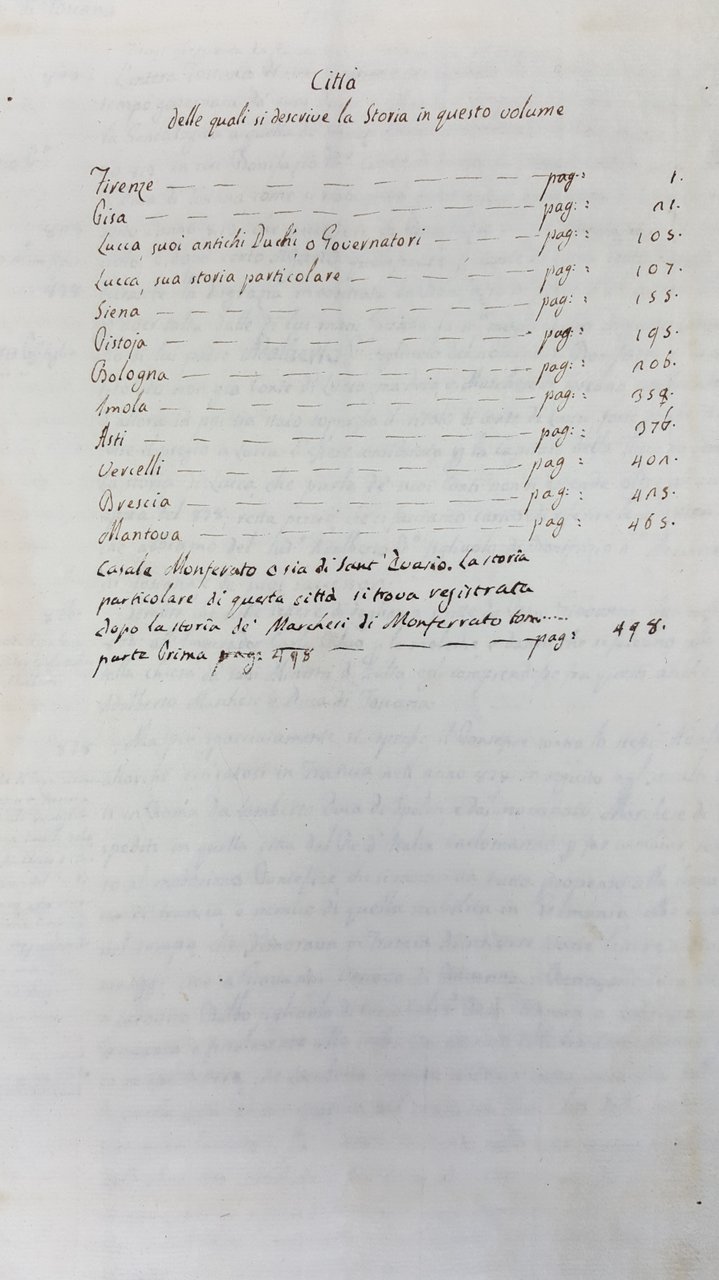 Città
delle quali si descrive la Storia in questo volume
Firenze — — — — — — — — pag: : 1.
Pisa — — — — — — — — — pag: : 21.
Lucca, suoi antichi Duchi o Governatori — — — pag: : 105.
Lucca, sua storia particolare — — — — — pag: : 107.
Siena — — — — — — — — — pag: : 155.
Pistoja — — — — — — — — — pag: : 195.
Bologna — — — — — — — — pag: : 206.
Imola — — — — — — — — — pag: : 358.
Asti — — — — — — — — — pag: : 376.
Vercelli — — — — — — — — pag : 402.
Brescia — — — — — — — — pag: : 425.
Mantova — — — — — — — — pag : 465.
Casale Monferrato o sia di Sant' Evasio. La storia
particolare di questa città si trova registrata
dopo la storia de' Marchesi di Monferrato tom.....
parte Prima pag: 498 — — — — pag: 498.